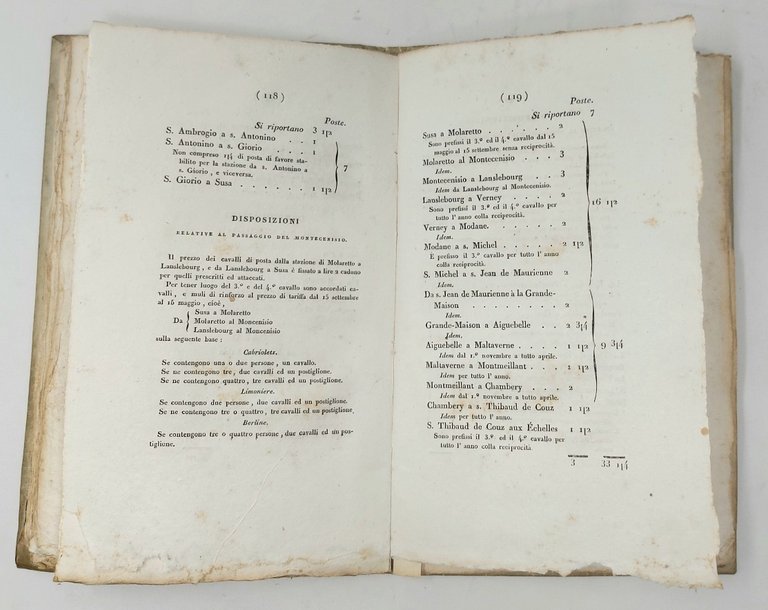 ( 118 )
Poste.
Si riportano 3 1/2
S. Ambrogio a s. Antonino . . 1
S. Antonino a s. Giorio . . . 1
Non compreso 1/4 di posta di favore sta-
bilito per la stazione da s. Antonino a
s. Giorio, e viceversa.
7
S. Giorio a Susa . . . . . . 1 1/2
DISPOSIZIONI
RELATIVE AL PASSAGGIO DEL MONTECENISIO.
Il prezzo dei cavalli di posta dalla stazione di Molaretto a
Lanslebourg, e da Lanslebourg a Susa è fissato a lire 2 cadono
per quelli prescritti ed attaccati.
Per tener luogo del 3.º e del 4.º cavallo sono accordati ca-
valli, e muli di rinforzo al prezzo di tariffa dal 15 settembre
al 15 maggio, cioè,
Susa a Molaretto
Da { Molaretto al Moncenisio
Lanslebourg al Moncenisio
sulla seguente base :
Cabriolets.
Se contengono una o due persone, un cavallo.
Se ne contengono tre, due cavalli ed un postiglione.
Se ne contengono quattro, tre cavalli ed un postiglione.
Limoniere.
Se contengono due persone, due cavalli ed un postiglione.
Se ne contengono tre o quattro, tre cavalli ed un postiglione.
Berline.
Se contengono tre o quattro persone, due cavalli ed un pos-
tiglione.
( 119 )
Poste.
Si riportano 7
Susa a Molaretto . . . . . . . 2
Sono prefissi il 3.º ed il 4.º cavallo dal 15
maggio al 15 settembre senza reciprocità.
Molaretto al Montecenisio . . . 3
Idem.
Montecenisio a Lanslebourg . . 3
Idem da Lanslebourg al Montecenisio.
Lanslebourg a Verney . . . . 2
Sono prefissi il 3.º ed il 4.º cavallo per
tutto l'anno colla reciprocità.
16 1/2
Verney a Modane. . . . . . 2
Idem.
Modane a s. Michel . . . . 2 1/2
È prefisso il 3.º cavallo per tutto l'anno
colla reciprocità.
S. Michel a s. Jean de Maurienne 2
Idem.
Da s. Jean de Maurienne à la Grande-
Maison . . . . . . . . 2
Idem.
Grande-Maison a Aiguebelle . . 2 3/4
Idem.
Aiguebelle a Maltaverne . . . 1 1/2
9 3/4
Idem dal 1.º novembre a tutto aprile.
Maltaverne a Montmeillant . . 1 1/2
Idem per tutto l'anno.
Montmeillant a Chambery . . . 2
Idem dal 1.º novembre a tutto aprile.
Chambery a s. Thibaud de Couz 1 1/2
Idem per tutto l'anno.
S. Thibaud de Couz aux Échelles 1 1/2
Sono prefissi il 3.º ed il 4.º cavallo per
tutto l'anno colla reciprocità
3 33 1/4